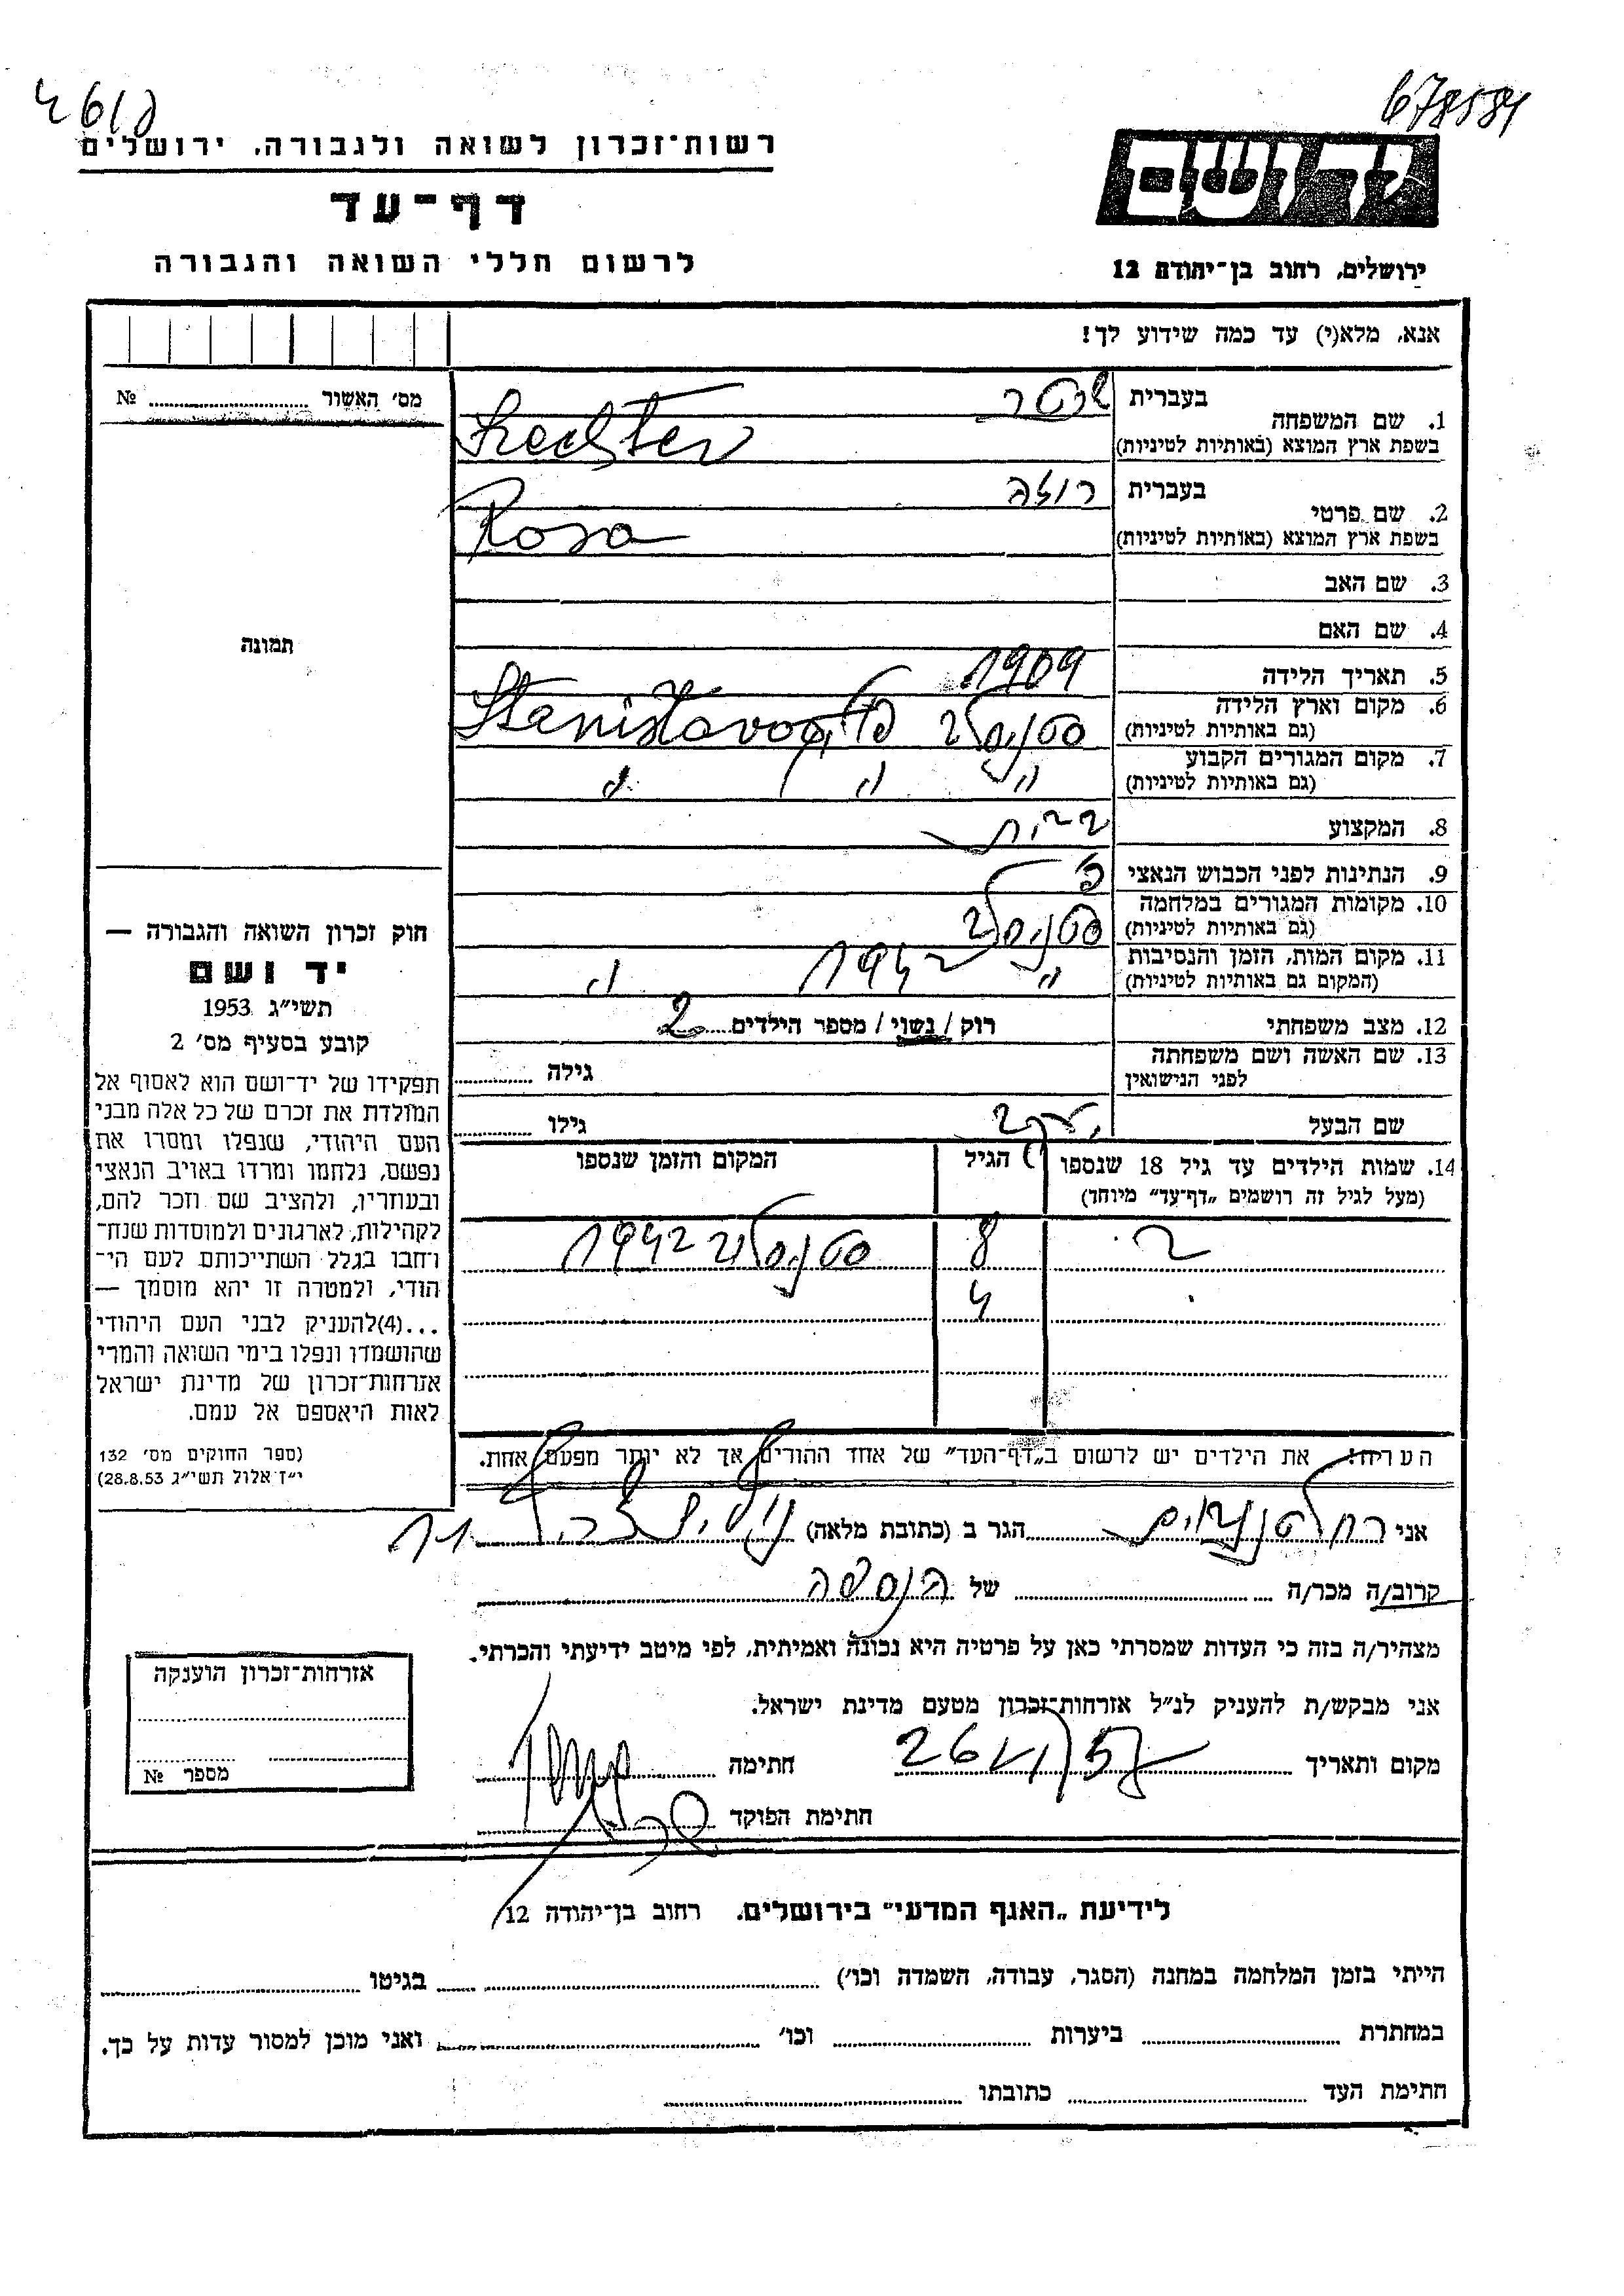 678584
רשות־זכרון לשואה ולגבורה, ירושלים
דף־עד
לרשום חללי השואה והגבורה
ירושלים, רחוב בן־יהודה 12
אנא, מלא(י) עד כמה שידוע לך!
מס׳ האשור № 
תמונה
1. שם המשפחה
בעברית שכטר
בשפת ארץ המוצא (באותיות לטיניות)
2. שם פרטי
בעברית רוזה
בשפת ארץ המוצא (באותיות לטיניות) Rosa
3. שם האב
4. שם האם
5. תאריך הלידה 1909
6. מקום וארץ הלידה
(גם באותיות לטיניות) סטניסלב פול. Stanislavov
7. מקום המגורים הקבוע
(גם באותיות לטיניות) " " "
8. המקצוע
9. הנתינות לפני הכבוש הנאצי פול
10. מקומות המגורים במלחמה
(גם באותיות לטיניות) סטניסלב
11. מקום המות, הזמן והנסיבות
(המקום גם באותיות לטיניות) " 1942 "
12. מצב משפחתי רוק / נשוי / מספר הילדים 2
13. שם האשה ושם משפחתה
לפני הנישואין גילה
שם הבעל יעקב גילו
14. שמות הילדים עד גיל 18 שנספו
(מעל לגיל זה רושמים „דף־עד״ מיוחד)
הגיל
המקום והזמן שנספו
2 8 סטניסלב 1942
4
הערה! את הילדים יש לרשום ב„דף־העד״ של אחד ההורים אך לא יותר מפעם אחת.
חוק זכרון השואה והגבורה —
יד ושם
תשי״ג 1953
קובע בסעיף מס׳ 2
תפקידו של יד־ושם הוא לאסוף אל
המולדת את זכרם של כל אלה מבני
העם היהודי, שנפלו ומסרו את
נפשם, נלחמו ומרדו באויב הנאצי
ובעוזריו, ולהציב שם וזכר להם,
לקהילות, לארגונים ולמוסדות שנח־
רבו בגלל השתייכותם לעם הי־
הודי, ולמטרה זו יהא מוסמך —
...(4)להעניק לבני העם היהודי
שהושמדו ונפלו בימי השואה והמרי
אזרחות־זכרון של מדינת ישראל
לאות היאספם אל עמם.
(ספר החוקים מס׳ 132
י״ז אלול תשי״ג 28.8.53)
אני רחל הגר ב (כתובת מלאה) 11
קרוב/ה מכר/ה של הנספה
מצהיר/ה בזה כי העדות שמסרתי כאן על פרטיה היא נכונה ואמיתית, לפי מיטב ידיעתי והכרתי.
אני מבקש/ת להעניק לנ״ל אזרחות־זכרון מטעם מדינת ישראל.
מקום ותאריך חתימה
חתימת הפוקד
אזרחות־זכרון הוענקה
מספר №
לידיעת „האגף המדעי״ בירושלים. רחוב בן־יהודה 12
הייתי בזמן המלחמה במחנה (הסגר, עבודה, השמדה וכו׳) בגיטו
במחתרת ביערות וכו׳ ואני מוכן למסור עדות על כך.
חתימת העד כתובתו